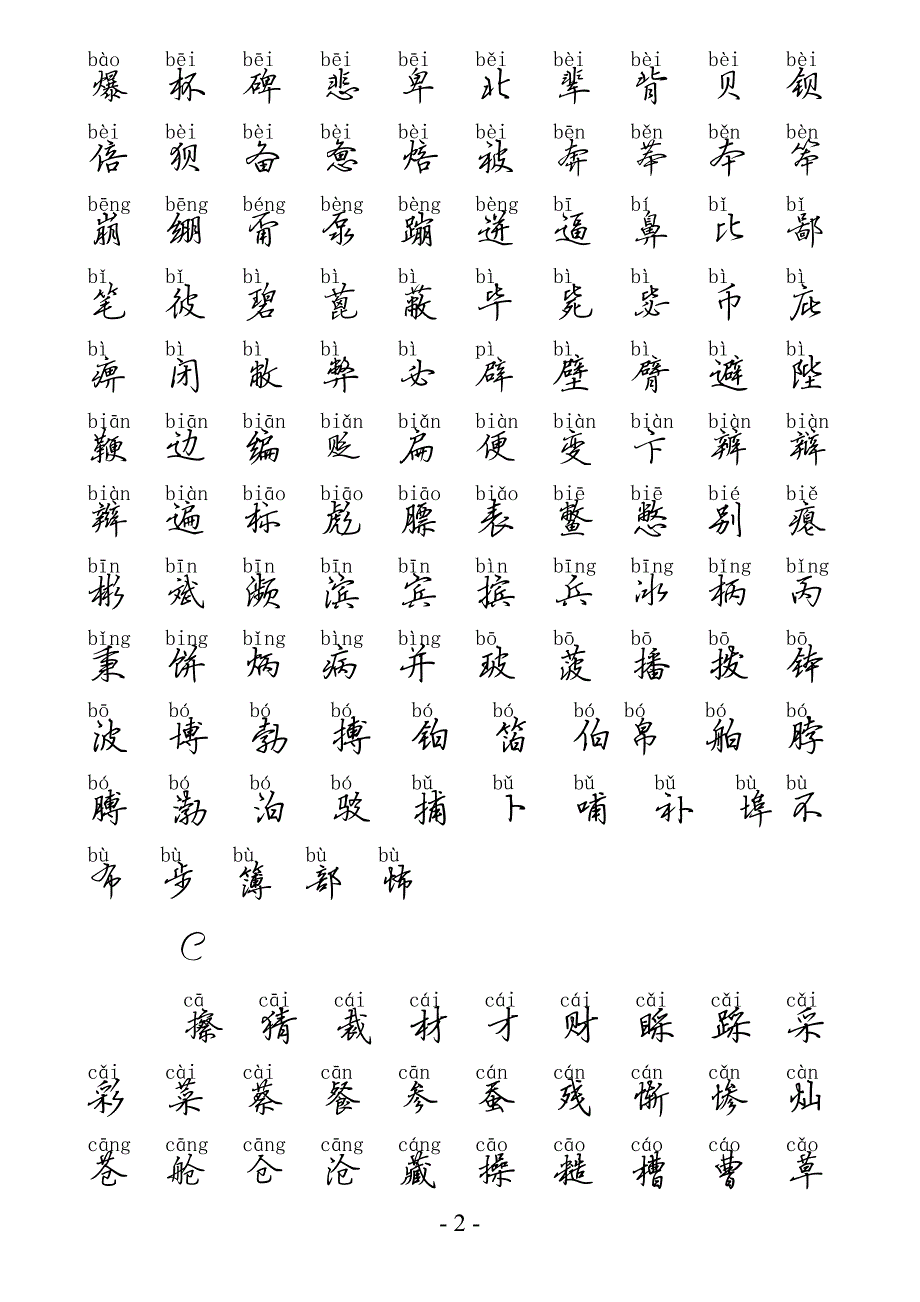 bào bēi bēi bēi bēi běi bèi bèi bèi bèi
爆 杯 碑 悲 卑 北 辈 背 贝 钡
bèi bèi bèi bèi bèi bèi bēn běn běn bèn
倍 狈 备 惫 焙 被 奔 苯 本 笨
bēng bēng béng bèng bèng bèng bī bí bǐ bǐ
崩 绷 甭 泵 蹦 迸 逼 鼻 比 鄙
bǐ bǐ bì bì bì bì bì bì bì bì
笔 彼 碧 蓖 蔽 毕 毙 毖 币 庇
bì bì bì bì bì pì bì bì bì bì
痹 闭 敝 弊 必 辟 壁 臂 避 陛
biān biān biān biǎn biǎn biàn biàn biàn biàn biàn
鞭 边 编 贬 扁 便 变 卞 辨 辩
biàn biàn biāo biāo biāo biǎo biē biē bié biě
辫 遍 标 彪 膘 表 鳖 憋 别 瘪
bīn bīn bīn bīn bīn bìn bīng bīng bǐng bǐng
彬 斌 濒 滨 宾 摈 兵 冰 柄 丙
bǐng bing bǐng bìng bìng bō bō bō bō bō
秉 饼 炳 病 并 玻 菠 播 拨 钵
bō bó bó bó bó bó bó bó bó bó
波 博 勃 搏 铂 箔 伯 帛 舶 脖
bó bó bó bó bǔ bǔ bǔ bǔ bù bù
膊 渤 泊 驳 捕 卜 哺 补 埠 不
bù bù bù bù bù
布 步 簿 部 怖
C
cā cāi cái cái cái cái cǎi cǎi cǎi
擦 猜 裁 材 才 财 睬 踩 采
cǎi cài cài cān cān cán cán cán cǎn càn
彩 菜 蔡 餐 参 蚕 残 惭 惨 灿
cāng cāng cāng cāng cáng cāo cāo cáo cáo cǎo
苍 舱 仓 沧 藏 操 糙 槽 曹 草
- 2 -